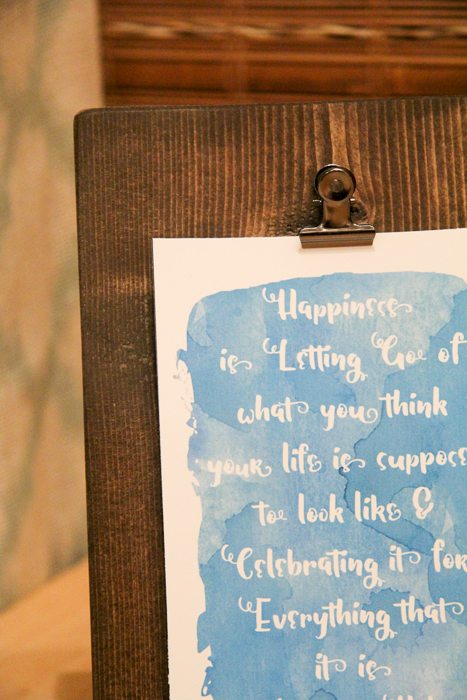 Happiness
is Letting Go of
what you think
your life is suppose
to look like &
Celebrating it for
Everything that
it is